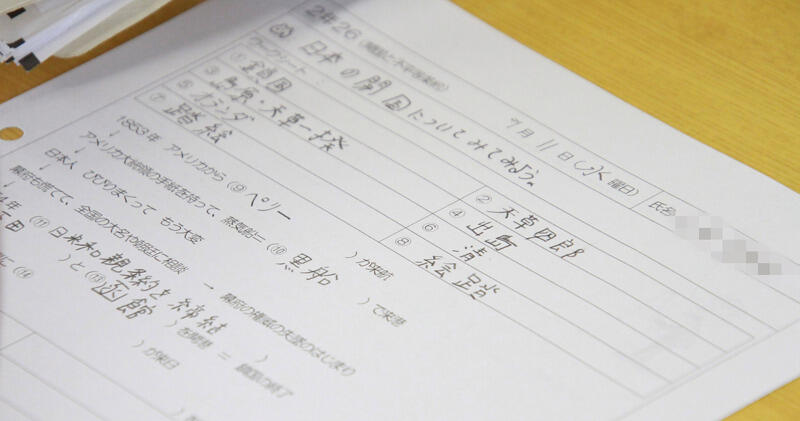 2年26(鎖国と不平等条約) 7月11日(水曜日) 氏名
日本の開国についてみてみよう。
ワークシート:
①鎖国 ②天草四郎
③島原・天草一揆 ④出町
⑤オランダ ⑥清
⑦踏絵 ⑧絵踏
1853年 アメリカから(⑨ペリー )が来航
アメリカ大統領の手紙を持って、蒸気船=(⑩黒船 )で来港
日本人 びびりまくって もう大変
幕府も慌てて、全国の大名や朝廷に相談 → 幕府の権威の失墜のはじまり
4年 (⑪日米和親条約を締結 )
田 )と(⑬函館 )を開港 = 鎖国の終了
に(⑭ )が来日